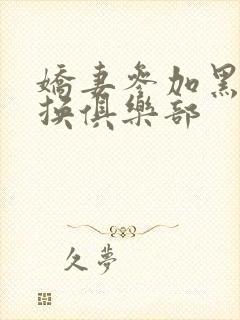 嬌妻參加黑
换俱樂部
久夢